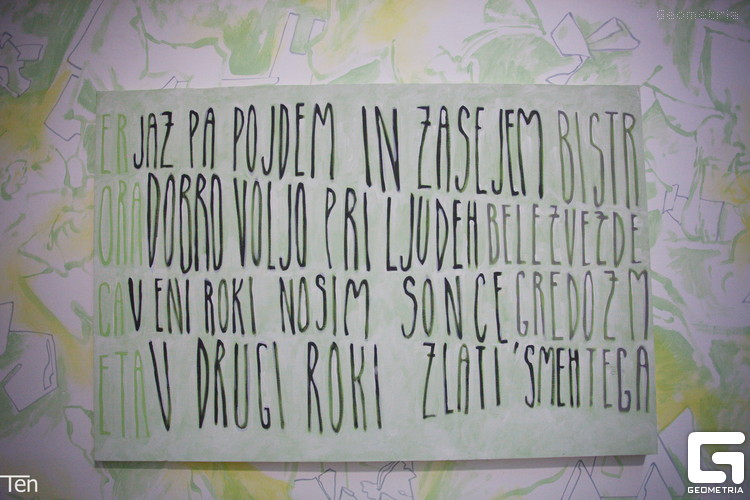 Geometria
ER JAZ PA POJDEM IN ZASEJEM BISTR
ORA DOBRO VOLJO PRI LJUDEH BELE ZVEZDE
CA V ENI ROKI NOSIM SONCE GREDO Z M
ETA V DRUGI ROKI ZLATI 'SMEH TEGA
Ten
GEOMETRIA